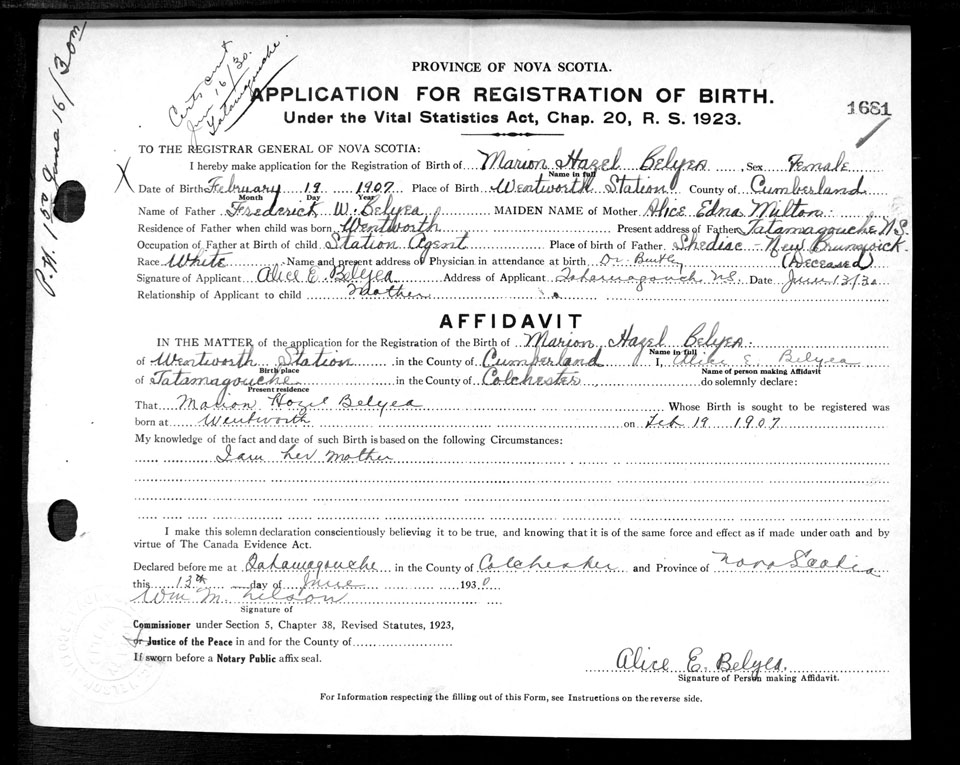 P.N. 150 June 16/30 m
Certs out
Jun 16/30.
Tatamagouche.
PROVINCE OF NOVA SCOTIA.
APPLICATION FOR REGISTRATION OF BIRTH.
Under the Vital Statistics Act, Chap. 20, R. S. 1923.
1681
TO THE REGISTRAR GENERAL OF NOVA SCOTIA:
I hereby make application for the Registration of Birth of Marion Hazel Belyea Sex Female
Name in full
X Date of Birth February 19 1907 Place of Birth Wentworth Station County of Cumberland
Month Day Year
Name of Father Frederick W. Belyea MAIDEN NAME of Mother Alice Edna Milton
Residence of Father when child was born Wentworth Present address of Father Tatamagouche N.S.
Occupation of Father at Birth of child Station Agent Place of birth of Father Shediac New Brunswick
Race White Name and present address of Physician in attendance at birth Dr. (Deceased)
Signature of Applicant Alice E. Belyea Address of Applicant Tatamagouch N.S. Date June 13/30
Relationship of Applicant to child Mother
AFFIDAVIT
IN THE MATTER of the application for the Registration of the Birth of Marion Hazel Belyea
Name in full
of Wentworth Station in the County of Cumberland I, Alice E. Belyea
Birth place Name of person making Affidavit
of Tatamagouche in the County of Colchester do solemnly declare:
Present residence
That Marion Hazel Belyea Whose Birth is sought to be registered was
born at Wentworth on Feb 19 1907
My knowledge of the fact and date of such Birth is based on the following Circumstances:
I am her mother
I make this solemn declaration conscientiously believing it to be true, and knowing that it is of the same force and effect as if made under oath and by
virtue of The Canada Evidence Act.
Declared before me at Tatamagouche in the County of Colchester and Province of Nova Scotia
this 13th day of June 1930
Wm M.
Signature of
Commissioner under Section 5, Chapter 38, Revised Statutes, 1923,
or Justice of the Peace in and for the County of
If sworn before a Notary Public affix seal.
Alice E. Belyea.
Signature of Person making Affidavit.
For Information respecting the filling out of this Form, see Instructions on the reverse side.